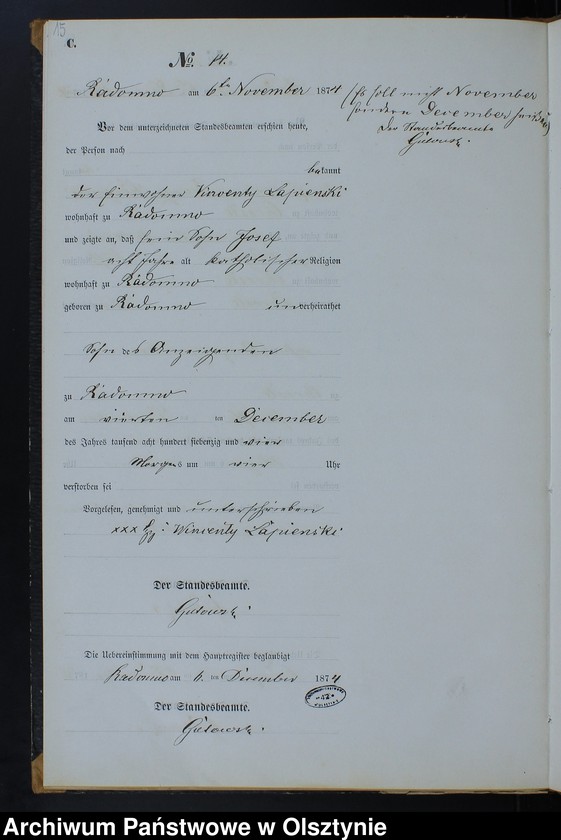 15
C.
No. 14.
Radomno am 6ten November 1874
(Es soll nicht November
sondern December heißen)
Der Standesbeamte
Vor dem unterzeichneten Standesbeamten erschien heute,
der Person nach
bekannt
der Einwohner Vinventy Lapienski
wohnhaft zu Radomno
und zeigte an, daß sein Sohn Josef
acht Jahre alt katholischer Religion
wohnhaft zu Radomno
geboren zu Radomno unverheirathet
Sohn des Anzeigenden
zu Radomno
am vierten ten December
des Jahres tausend acht hundert siebenzig und vier
Morgens um vier Uhr
verstorben sei
Vorgelesen, genehmigt und unterschrieben
xxx Vinventy Lapienski
Der Standesbeamte.
Die Uebereinstimmung mit dem Hauptregister beglaubigt
Radomno am 6. ten December 1874
Der Standesbeamte.
Archiwum Państwowe w Olsztynie